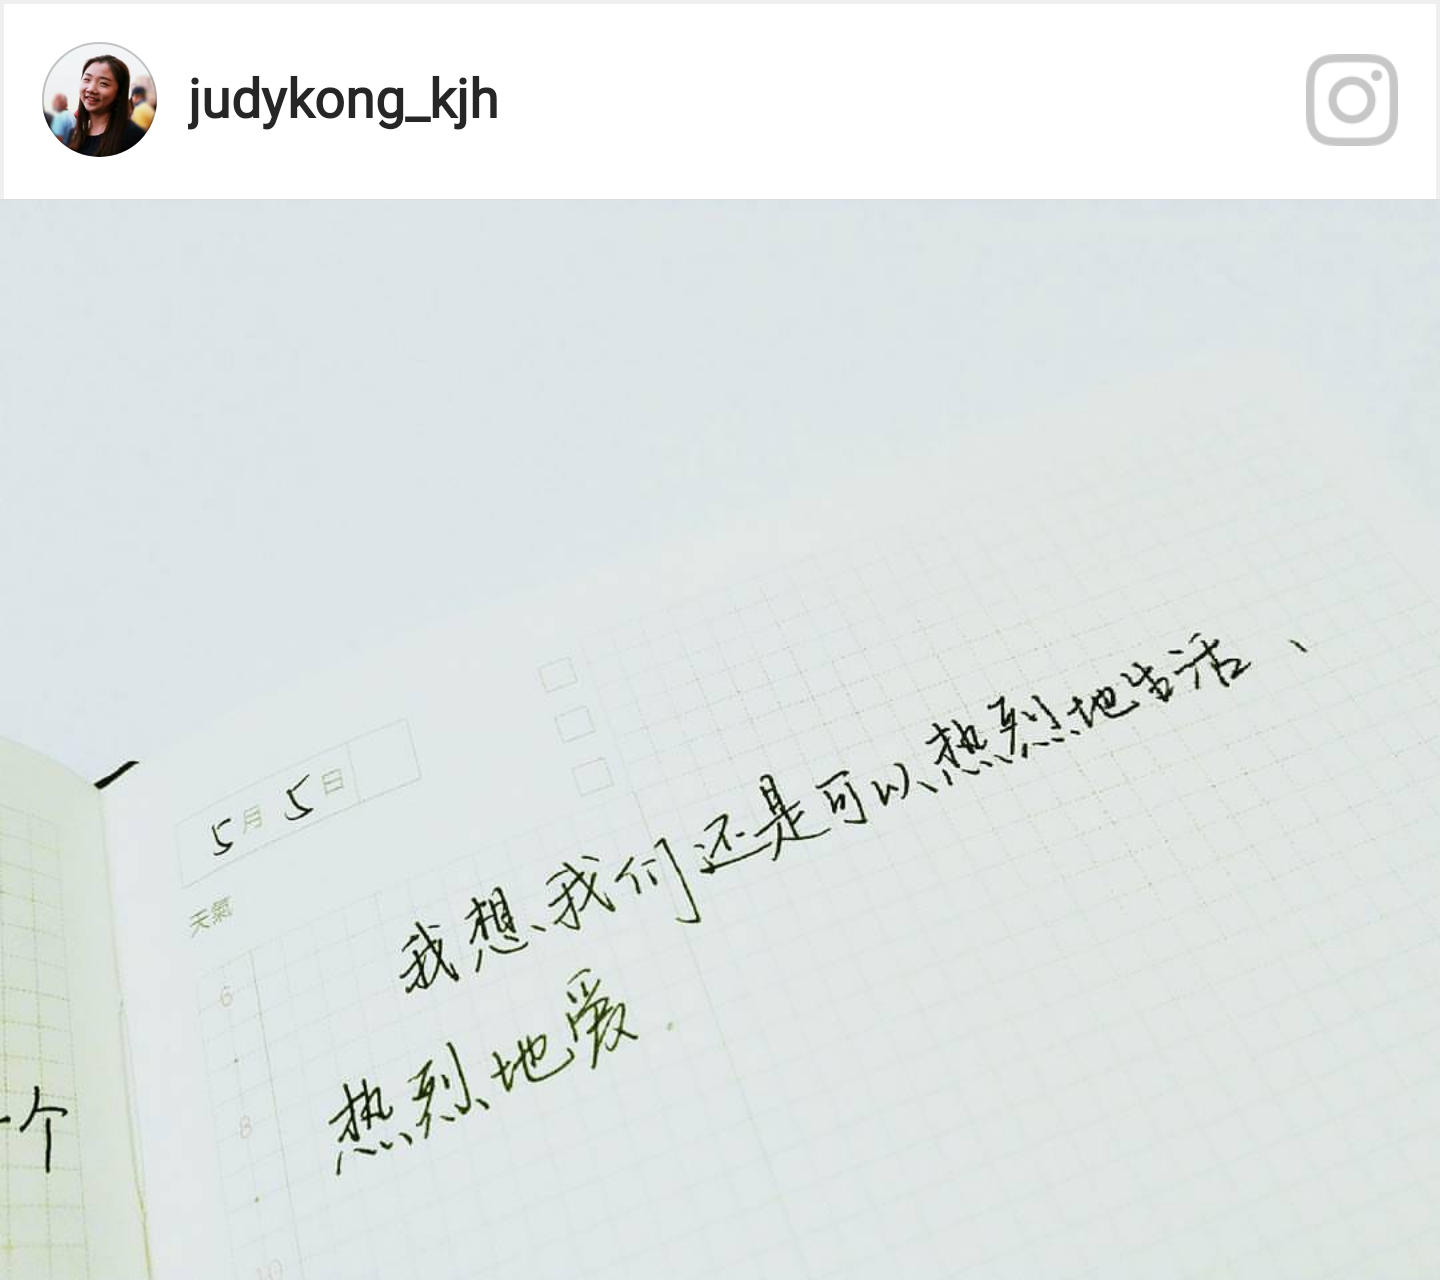 judykong_kjh
5月5日
天氣
6
8
10
我想、我们还是可以热烈地生活、
热烈地爱.
个